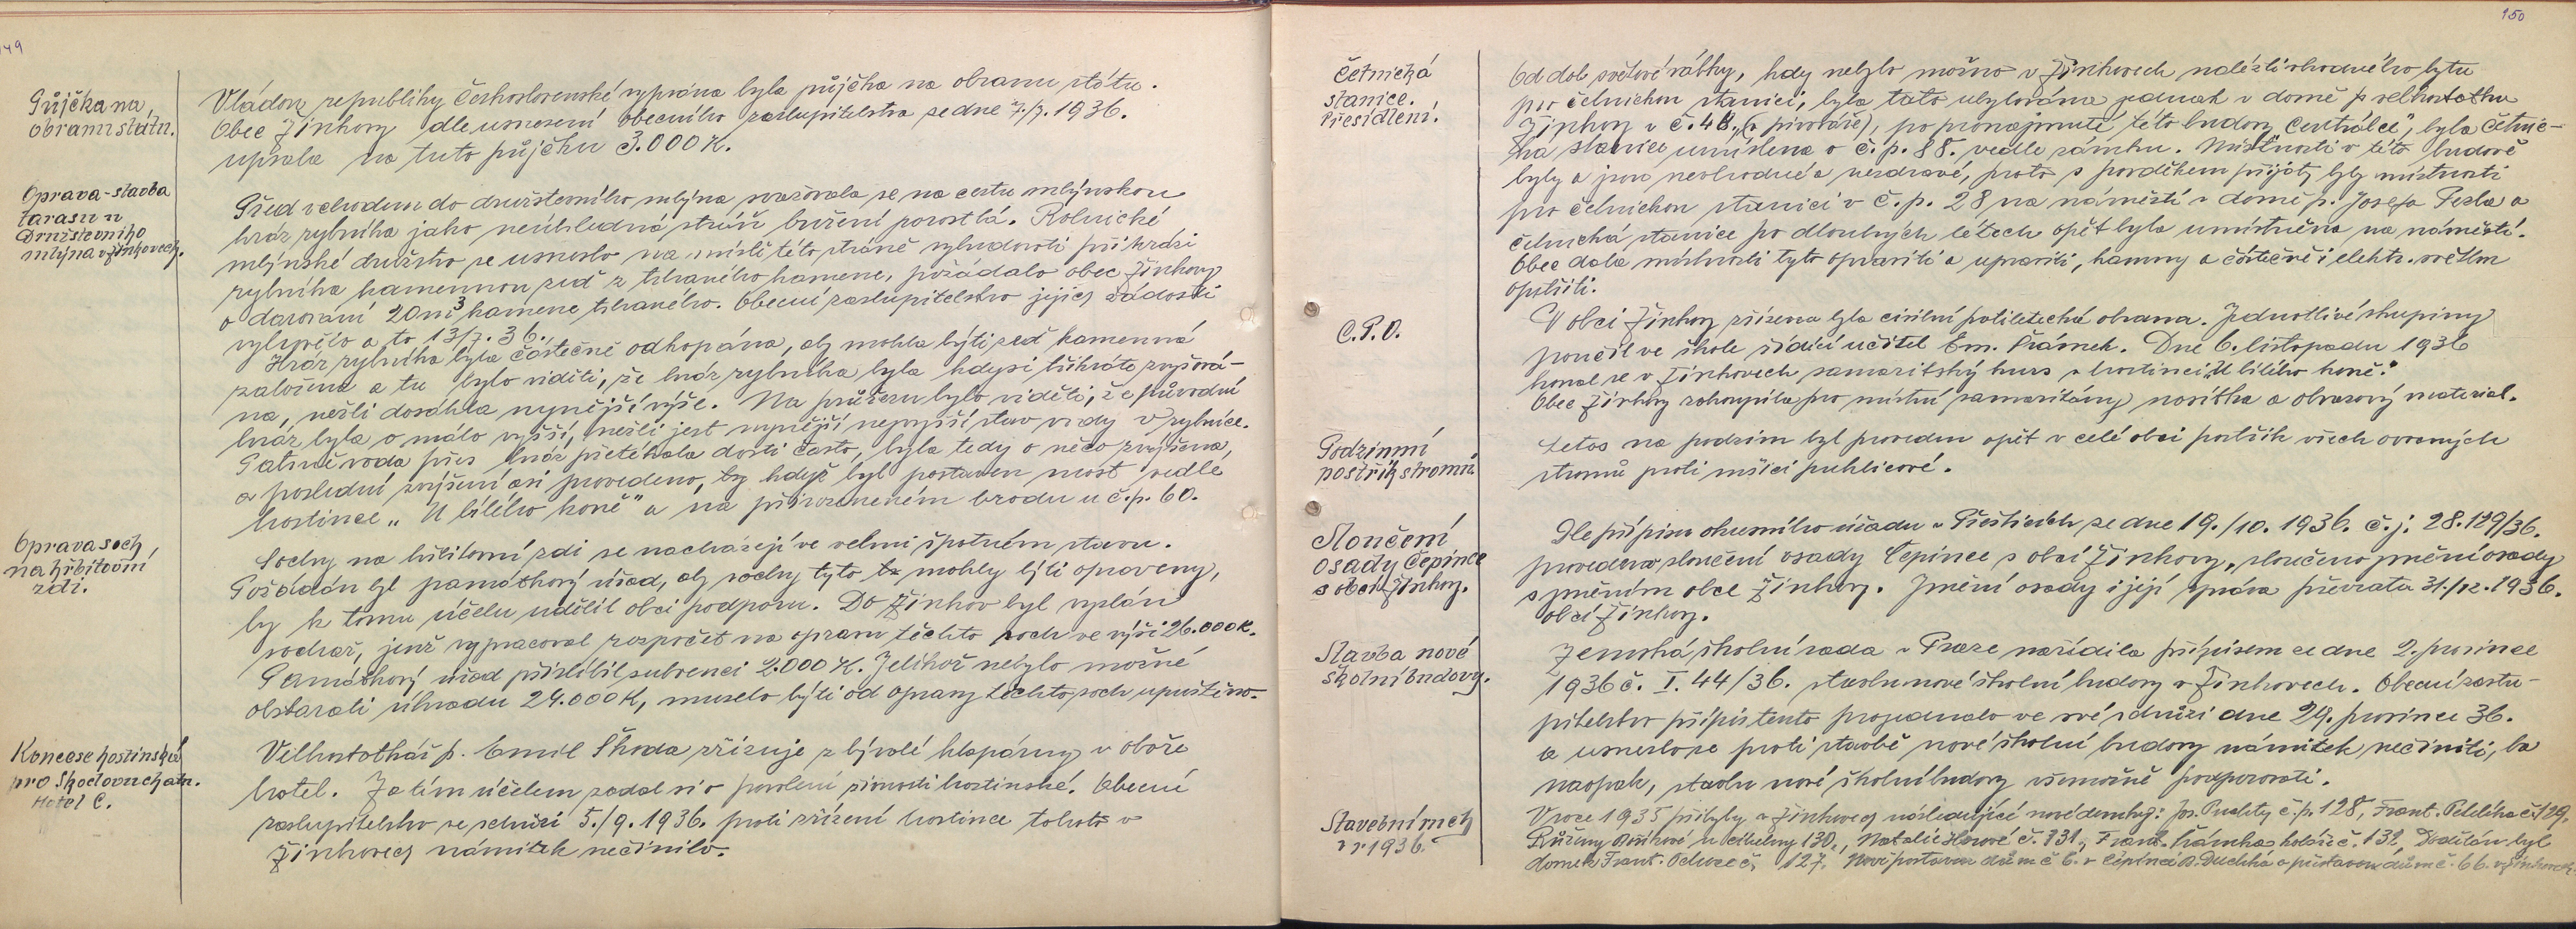 149
Půjčka na
obranu státu.
Vládou republiky Československé vypsána byla půjčka na obranu státu.
Obec Žinkovy dle usnesení obecního zastupitelstva ze dne 7./7. 1936.
upsala na tuto půjčku 3.000 K.
Oprava-stavba
tarasu u
Družstevního
mlýna v Žinkovech.
Před vchodem do družstevního mlýna svažovala se na cestu mlýnskou
hráz rybníka jako neúhledná stráň buření porostlá. Rolnické
mlýnské družstvo se usneslo na místě této stráně vybudovati při hrázi
rybníka kamennou zeď z trhaného kamene, požádalo obec Žinkovy
o darování 20 m3 kamene trhaného. Obecní zastupitelstvo jejich žádosti
vyhovělo a to 13/7. 36.
Hráz rybníka byla částečně odkopána, aby mohla býti zeď kamenná
založena a tu bylo viděti, že hráz rybníka byla kdysi třikráte zvyšová-
na, nežli dosáhla nynější výše. Na průřezu bylo viděti, že původní
hráz byla o málo vyšší, nežli jest nynější nejvyšší stav vody v rybníce.
Patrně voda přes hráz přetékala dosti často, byla tedy o něco zvýšena,
a poslední zvýšení asi provedeno, když byl postaven most vedle
hostince „U bílého koně" a na přirozeném brodu u č.p. 60.
Oprava soch
na hřbitovní
zdi.
Sochy na hřbitovní zdi se nacházejí ve velmi špatném stavu.
Požádán byl památkový úřad, aby sochy tyto mohly býti opraveny,
by k tomu účelu udělil obci podporu. Do Žinkov byl vyslán
sochař, jenž vypracoval rozpočet na opravu těchto soch ve výši 26.000 K.
Památkový úřad přislíbil subvenci 2.000 K. Jelikož nebylo možné
obstarati úhradu 24.000 K, muselo býti od opravy těchto soch upuštěno.
Koncese hostinská
pro Škodovu chatu.
Hotel C.
Velkostatkář p. Emil Škoda zřizuje z bývalé klapárny v oboře
hotel. Za tím účelem zadal si o povolení živnosti hostinské. Obecní
zastupitelstvo ve schůzi 5./9. 1936. proti zřízení hostince tohoto v
Žinkovech námitek nečinilo.
150
Četnická
stanice.
Přesídlení.
Od dob světové války, kdy nebylo možno v Žinkovech nalézti vhodného bytu
pro četnickou stanici, byla tato ubytována jednak v domě p. velkostatku
Žinkovy v č. 48. (v pivováře), po pronajmutí této budovy „Centrálce", byla četnic-
ká stanice umístěna v č.p. 88. vedle zámku. Místnosti v této budově
byly a jsou nevhodné a nezdravé, proto s povděkem přijaty byly místnosti
pro četnickou stanici v č.p. 28 na náměstí v domě p. Josefa Pesla a
četnická stanice po dlouhých létech opět byla umístněna na náměstí.
Obec dala místnosti tyto opraviti a upraviti, kamny a částečně i elektr. světlem
opatřiti.
C.P.O.
V obci Žinkovy zřízena byla civilní protiletecká obrana. Jednotlivé skupiny
poučil ve škole řídící učitel Em. Krámek. Dne 6. listopadu 1936
konal se v Žinkovech samaritský kurs v hostinci „U bílého koně."
Obec Žinkovy zakoupila pro místní samaritány nosítka a obvazový material.
Podzimní
postřik stromů
Letos na podzim byl proveden opět v celé obci postřik všech ovocných
stromů proti mšici puklicové.
Sloučení
osady Čepince
s obcí Žinkovy.
Dle přípisu okresního úřadu v Přešticích ze dne 19./10. 1936. č.j. 28.129/36.
provedeno sloučení osady Čepinec s obcí Žinkovy, sloučeno jmění osady
s jměním obce Žinkovy. Jmění osady i její správa převzata 31./12. 1936.
obcí Žinkovy.
Stavba nové
školní budovy.
Zemská školní rada v Praze nařídila přípisem ze dne 2. prosince
1936 č. I. 44/36. stavbu nové školní budovy v Žinkovech. Obecní zastu-
pitelstvo přípis tento projednalo ve své schůzi dne 29. prosince 36.
a usneslo se proti stavbě nové školní budovy námitek nečiniti, ba
naopak, stavbu nové školní budovy všemožně podporovati.
Stavební ruch
v r. 1936.
V roce 1935 přibyly v Žinkovech následující nové domky: Jos. Puchty č.p. 128, Frant. č. 129,
Růženy u 130., Natalie č. 131., Frant. Krámka koláře č. 132, Dostavěn byl
domek Frant. č. 127. Nově postaven dům č. 6. v Čepinci a přistavem dům č. 66. v Žinkovech.